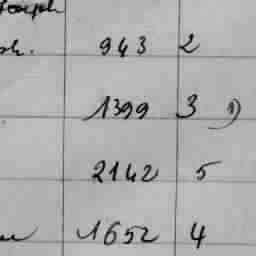 Joseph
ph. 943 2
1399 3 1)
2142 5
1652 4